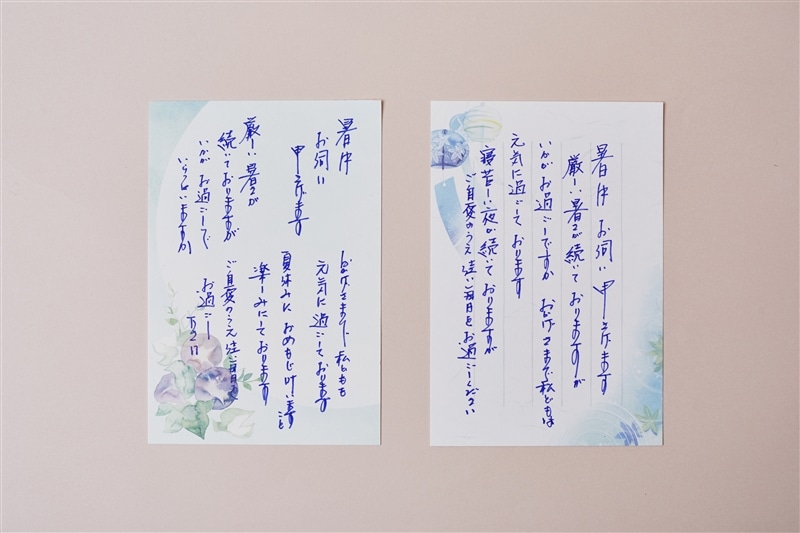 暑中
お伺い
申上げます
厳しい暑さが
続いておりますが
いかがお過ごしで
いらっしゃいますか
おかげさまで私どもも
元気に過ごしております
夏休みにおめもじ叶いますこと
楽しみにしております
ご自愛のうえ佳い毎日を
お過ごし
下さい
暑中お伺い申上げます
厳しい暑さが続いておりますが
いかがお過ごしですか おかげさまで私どもは
元気に過ごしております
寝苦しい夜が続いておりますが
ご自愛のうえ佳い毎日をお過ごしください